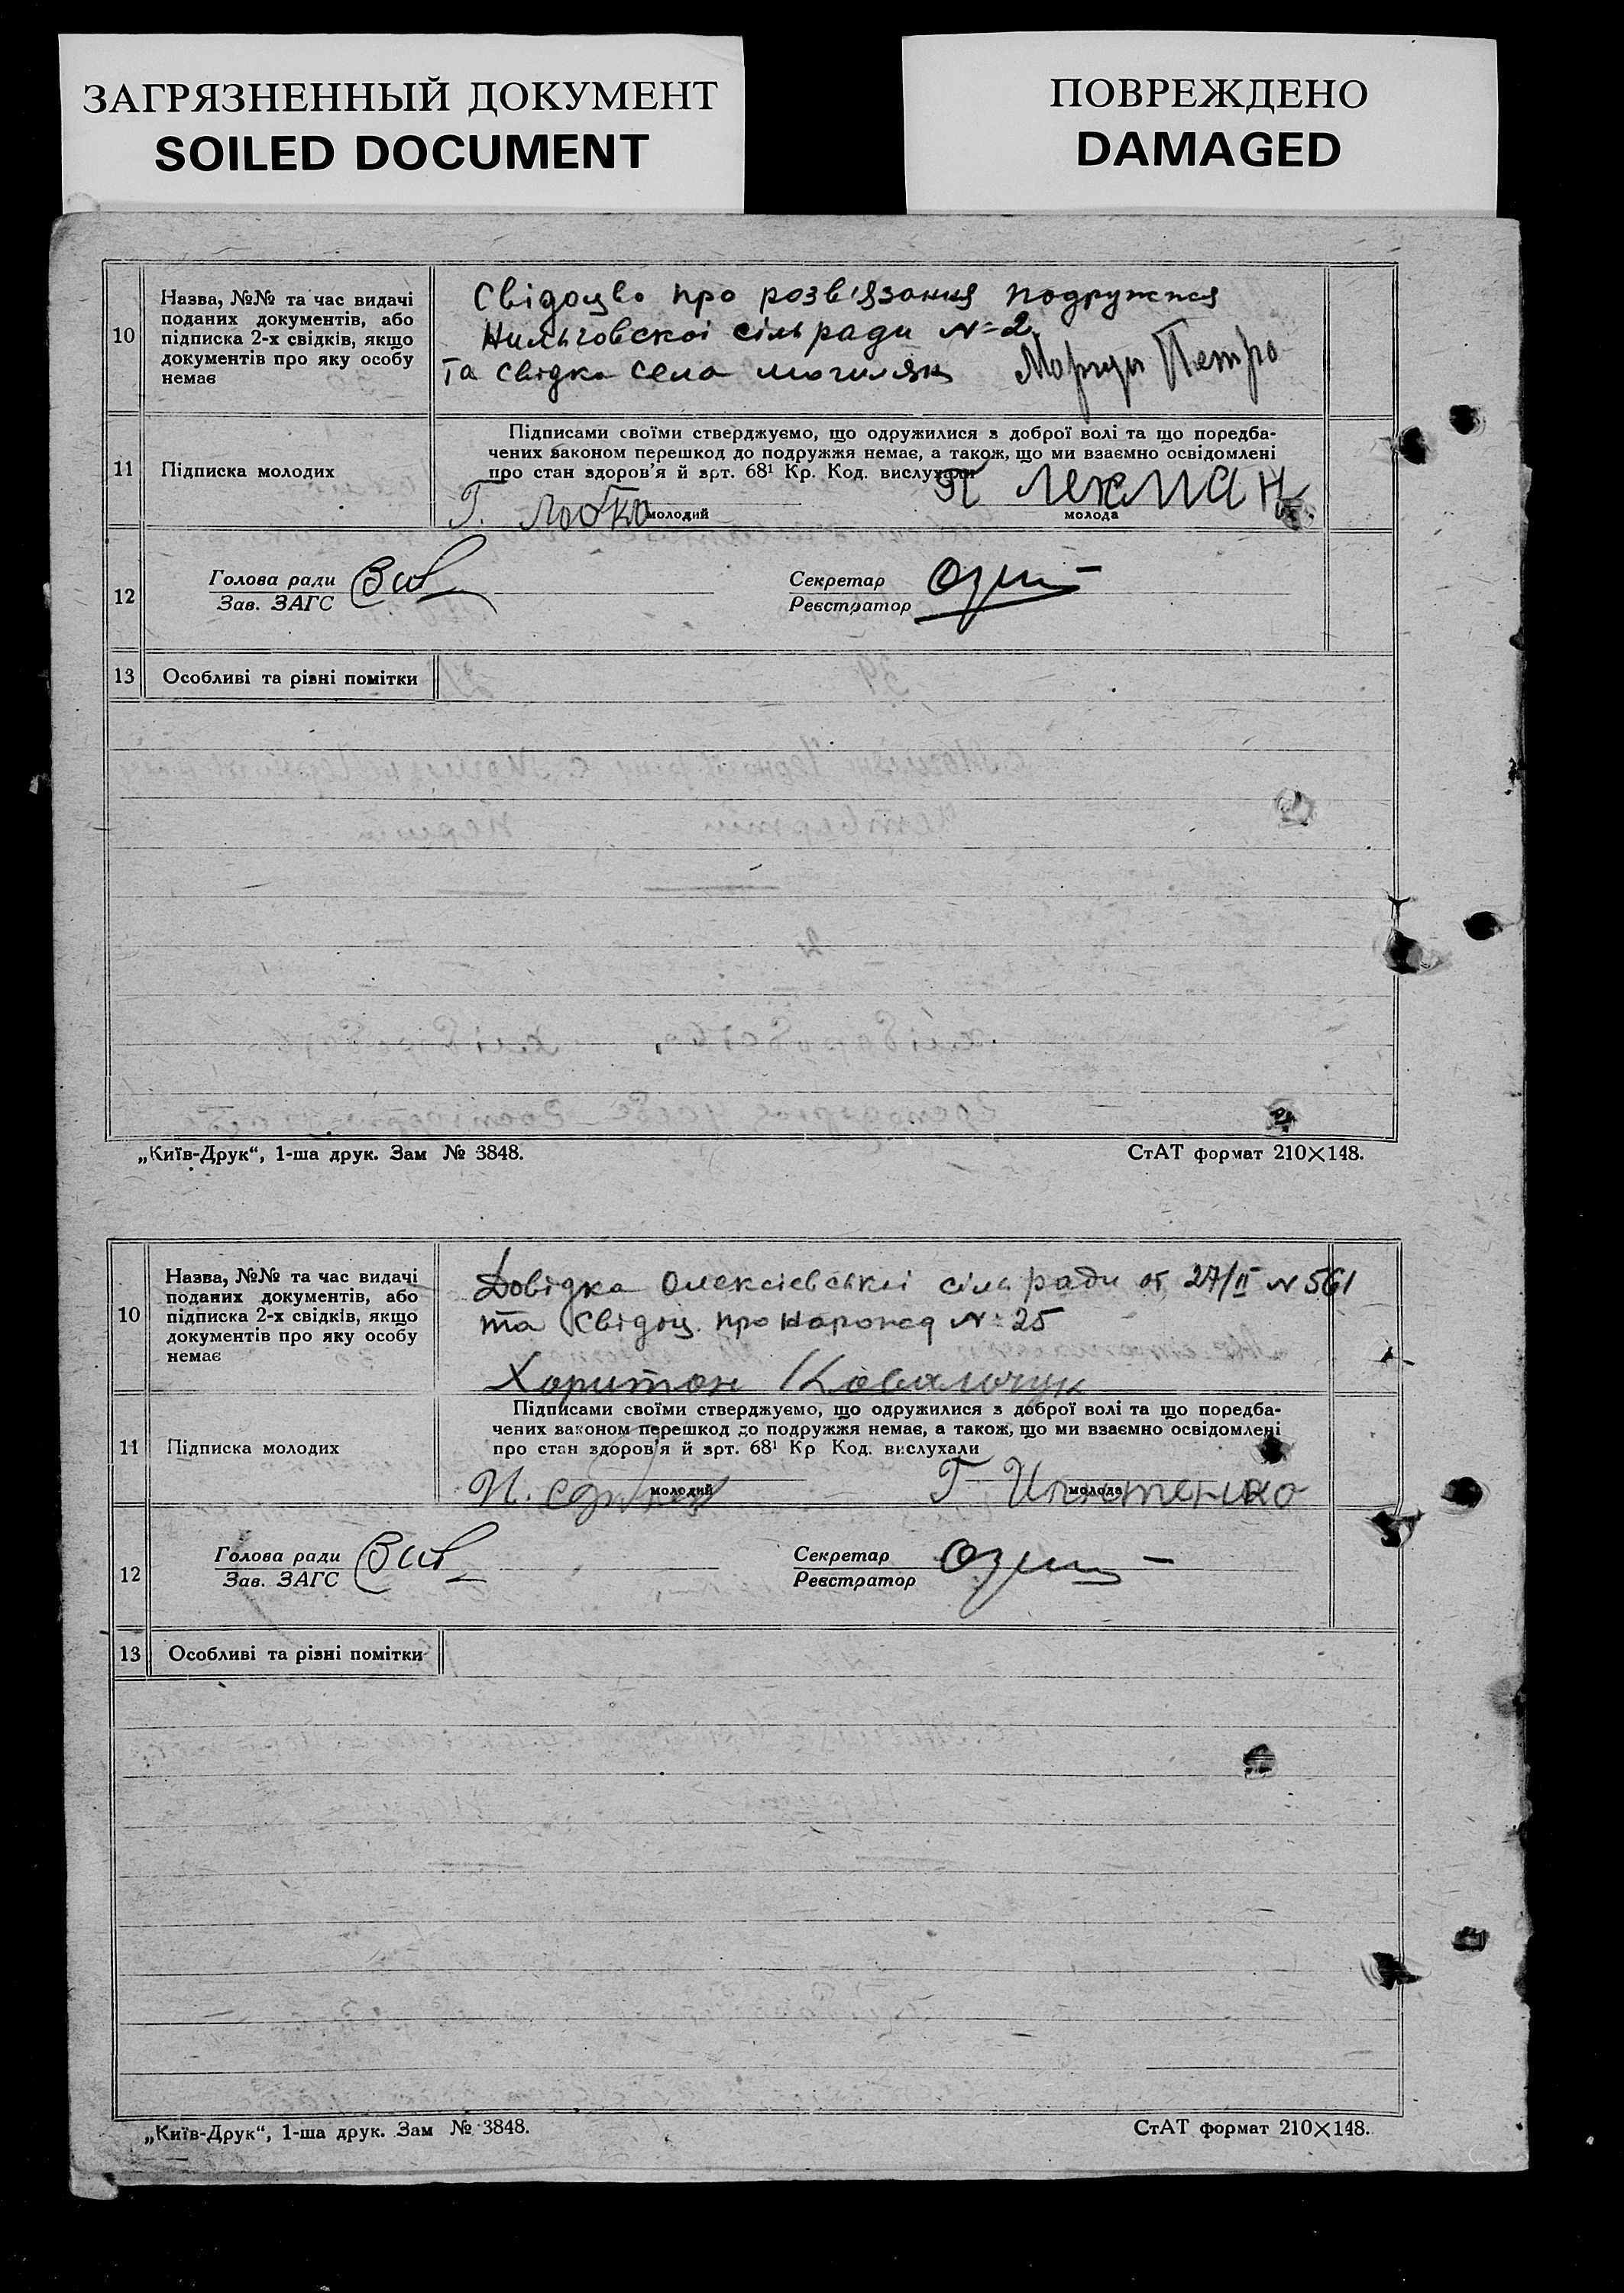 ЗАГРЯЗНЕННЫЙ ДОКУМЕНТ
SOILED DOCUMENT
ПОВРЕЖДЕНО
DAMAGED
10
Назва, №№ та час видачі
поданих документів, або
підписка 2-х свідків, якщо
документів про яку особу
немає
Свідоцво про розвʼязання подружжя
сільради №2
та свідка села могиляни Петро
11
Підписка молодих
Підписами своїми стверджуємо, що одружилися з доброї волі та що поредба-
чених законом перешкод до подружжя немає, а також, що ми взаємно освідомлені
про стан здоров'я й арт. 68¹ Кр. Код. вислухали
Г. Лобко
молодий
молода
12
Голова ради
Зав. ЗАГС
Секретар
Реєстратор
13
Особливі та різні помітки
„Київ-Друк“, 1-ша друк. Зам № 3848.
СтАТ формат 210×148.
10
Назва, №№ та час видачі
поданих документів, або
підписка 2-х свідків, якщо
документів про яку особу
немає
Довідка Олексієвської сільради от 27/II № 561
та свідоц. про народ № 25
Харитон Ковальчук
11
Підписка молодих
Підписами своїми стверджуємо, що одружилися з доброї волі та що поредба-
чених законом перешкод до подружжя немає, а також, що ми взаємно освідомлені
про стан здоров'я й арт. 68¹ Кр Код. вислухали
молодий
Г
молода
12
Голова ради
Зав. ЗАГС
Секретар
Реєстратор
13
Особливі та різні помітки
„Київ-Друк“, 1-ша друк. Зам № 3848.
СтАТ формат 210×148.